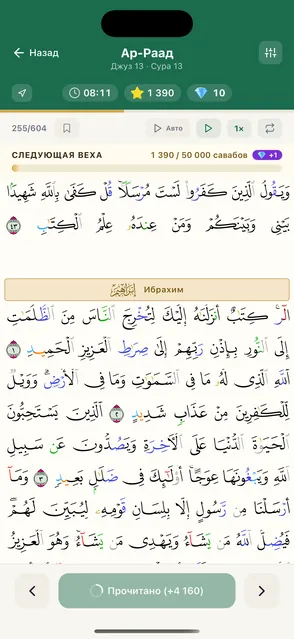 Назад
Ар-Раад
Джуз 13 · Сура 13
08:11
1 390
10
255/604
Авто
1×
СЛЕДУЮЩАЯ ВЕХА
1 390 / 50 000 савабов
+1
وَيَقُولُ الَّذِينَ كَفَرُوا لَسْتَ مُرْسَلًا ۚ قُلْ كَفَىٰ بِاللَّهِ شَهِيدًا
بَيْنِي وَبَيْنَكُمْ وَمَنْ عِندَهُ عِلْمُ الْكِتَابِ ٤٣
إبراهيم Ибрахим
الر ۚ كِتَابٌ أَنزَلْنَاهُ إِلَيْكَ لِتُخْرِجَ النَّاسَ مِنَ الظُّلُمَاتِ
إِلَى النُّورِ بِإِذْنِ رَبِّهِمْ إِلَىٰ صِرَاطِ الْعَزِيزِ الْحَمِيدِ ١
اللَّهِ الَّذِي لَهُ مَا فِي السَّمَاوَاتِ وَمَا فِي الْأَرْضِ ۗ وَوَيْلٌ
لِّلْكَافِرِينَ مِنْ عَذَابٍ شَدِيدٍ ٢ الَّذِينَ يَسْتَحِبُّونَ
الْحَيَاةَ الدُّنْيَا عَلَى الْآخِرَةِ وَيَصُدُّونَ عَن سَبِيلِ
اللَّهِ وَيَبْغُونَهَا عِوَجًا ۚ أُولَٰئِكَ فِي ضَلَالٍ بَعِيدٍ ٣ وَمَا
أَرْسَلْنَا مِن رَّسُولٍ إِلَّا بِلِسَانِ قَوْمِهِ لِيُبَيِّنَ لَهُمْ ۖ
فَيُضِلُّ اللَّهُ مَن يَشَاءُ وَيَهْدِي مَن يَشَاءُ ۚ وَهُوَ الْعَزِيزُ
Прочитано (+4 160)